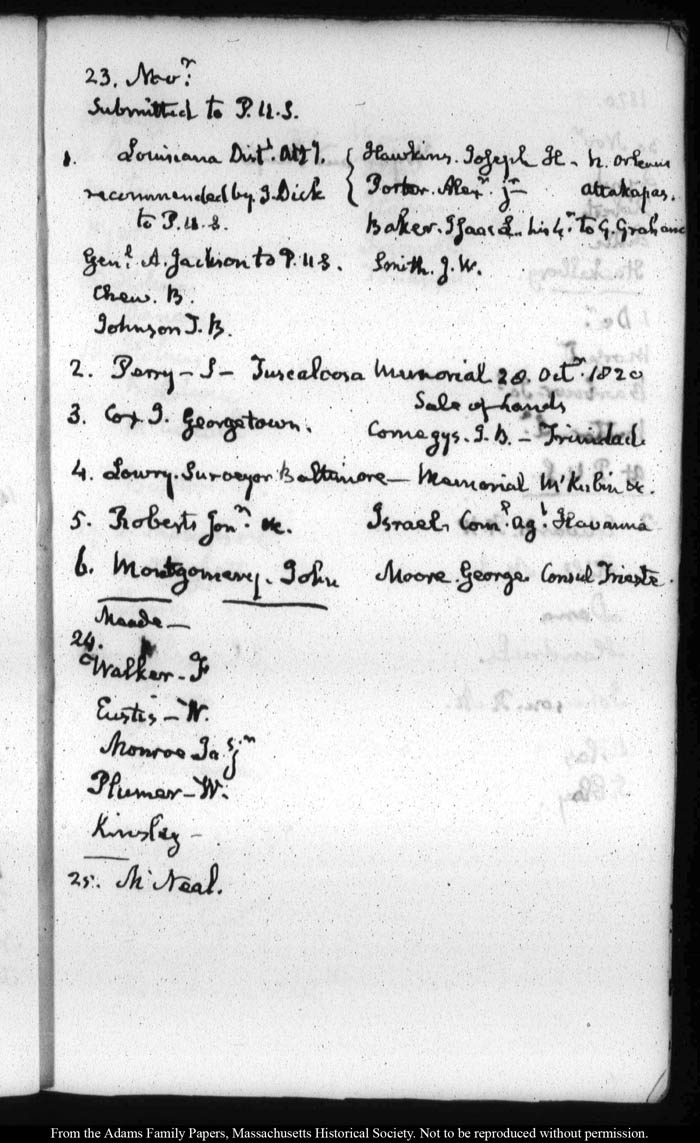 23. Novr.
Submitted to P.U.S.
1. Louisiana Distt. Atty. { Hawkins. Joseph H. - N. Orleans
recommended by J. Dick { Porter. Alexr. jr - Attakapas.
to P.U.S. Baker. Isaac L. his Lr. to G. Graham
Genl. A. Jackson to P.U.S. Smith. J.W.
Chew. B.
Johnson J.B.
2. Perry - S - Tuscaloosa Memorial 28. Octr. 1820
Sale of Lands
3. Cox J. Georgetown. Comegys. J.B. - Trinidad
4. Lowry. Surveyor Baltimore - Memorial McKubin &c.
5. Roberts Jonn. &c. Israel. Coml. Agt. Havanna
6. Montgomery. John Moore. George. Consul Trieste.
Meade -
24.
Walker - F
Eustis - W.
Monroe Jas. jr
Plumer - W.
Kinsley -
25. McNeal.
From the Adams Family Papers, Massachusetts Historical Society. Not to be reproduced without permission.